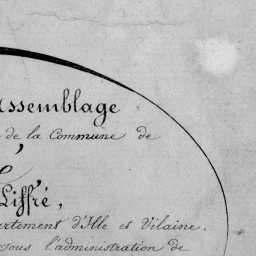 ssemblage
de la Commune de
Liffré,
artement d'Ille et Vilaine.
sous l'administration de